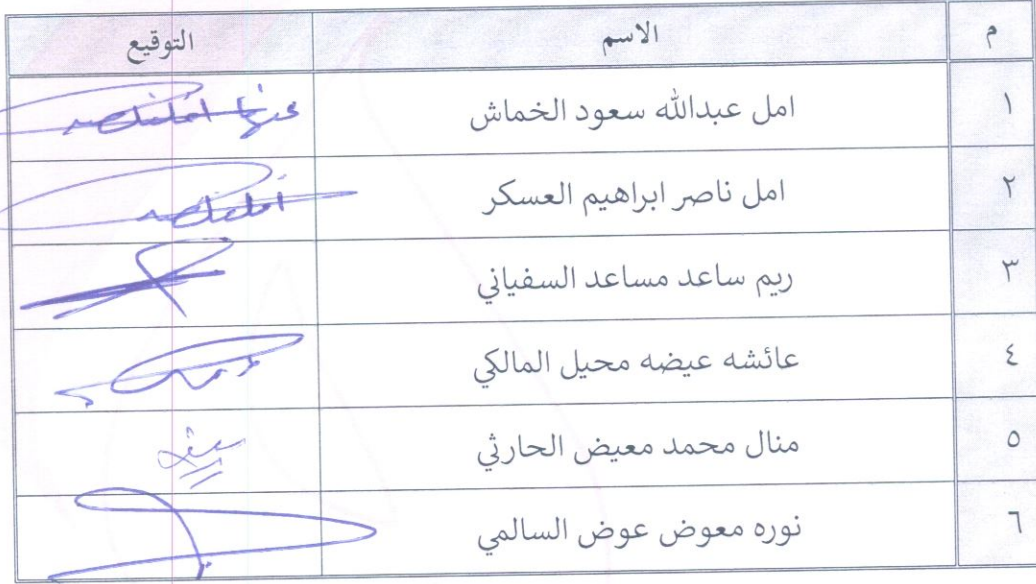 م الاسم التوقيع
١ امل عبدالله سعود الخماش عنها
٢ امل ناصر ابراهيم العسكر
٣ ريم ساعد مساعد السفياني
٤ عائشه عيضه محيل المالكي
٥ منال محمد معيض الحارثي
٦ نوره معوض عوض السالمي